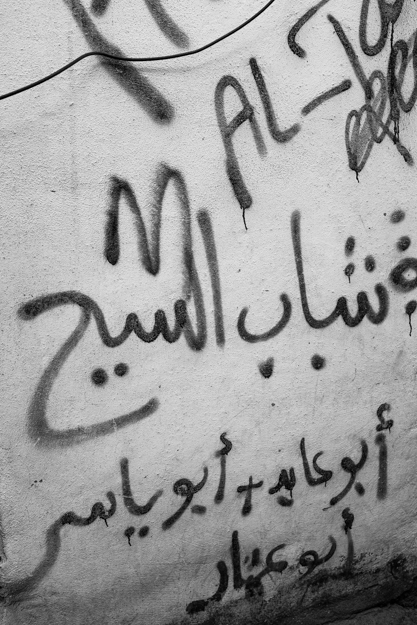 AL-
M
شباب السيح
أبو عابد + أبو ياسر
أبو عمار